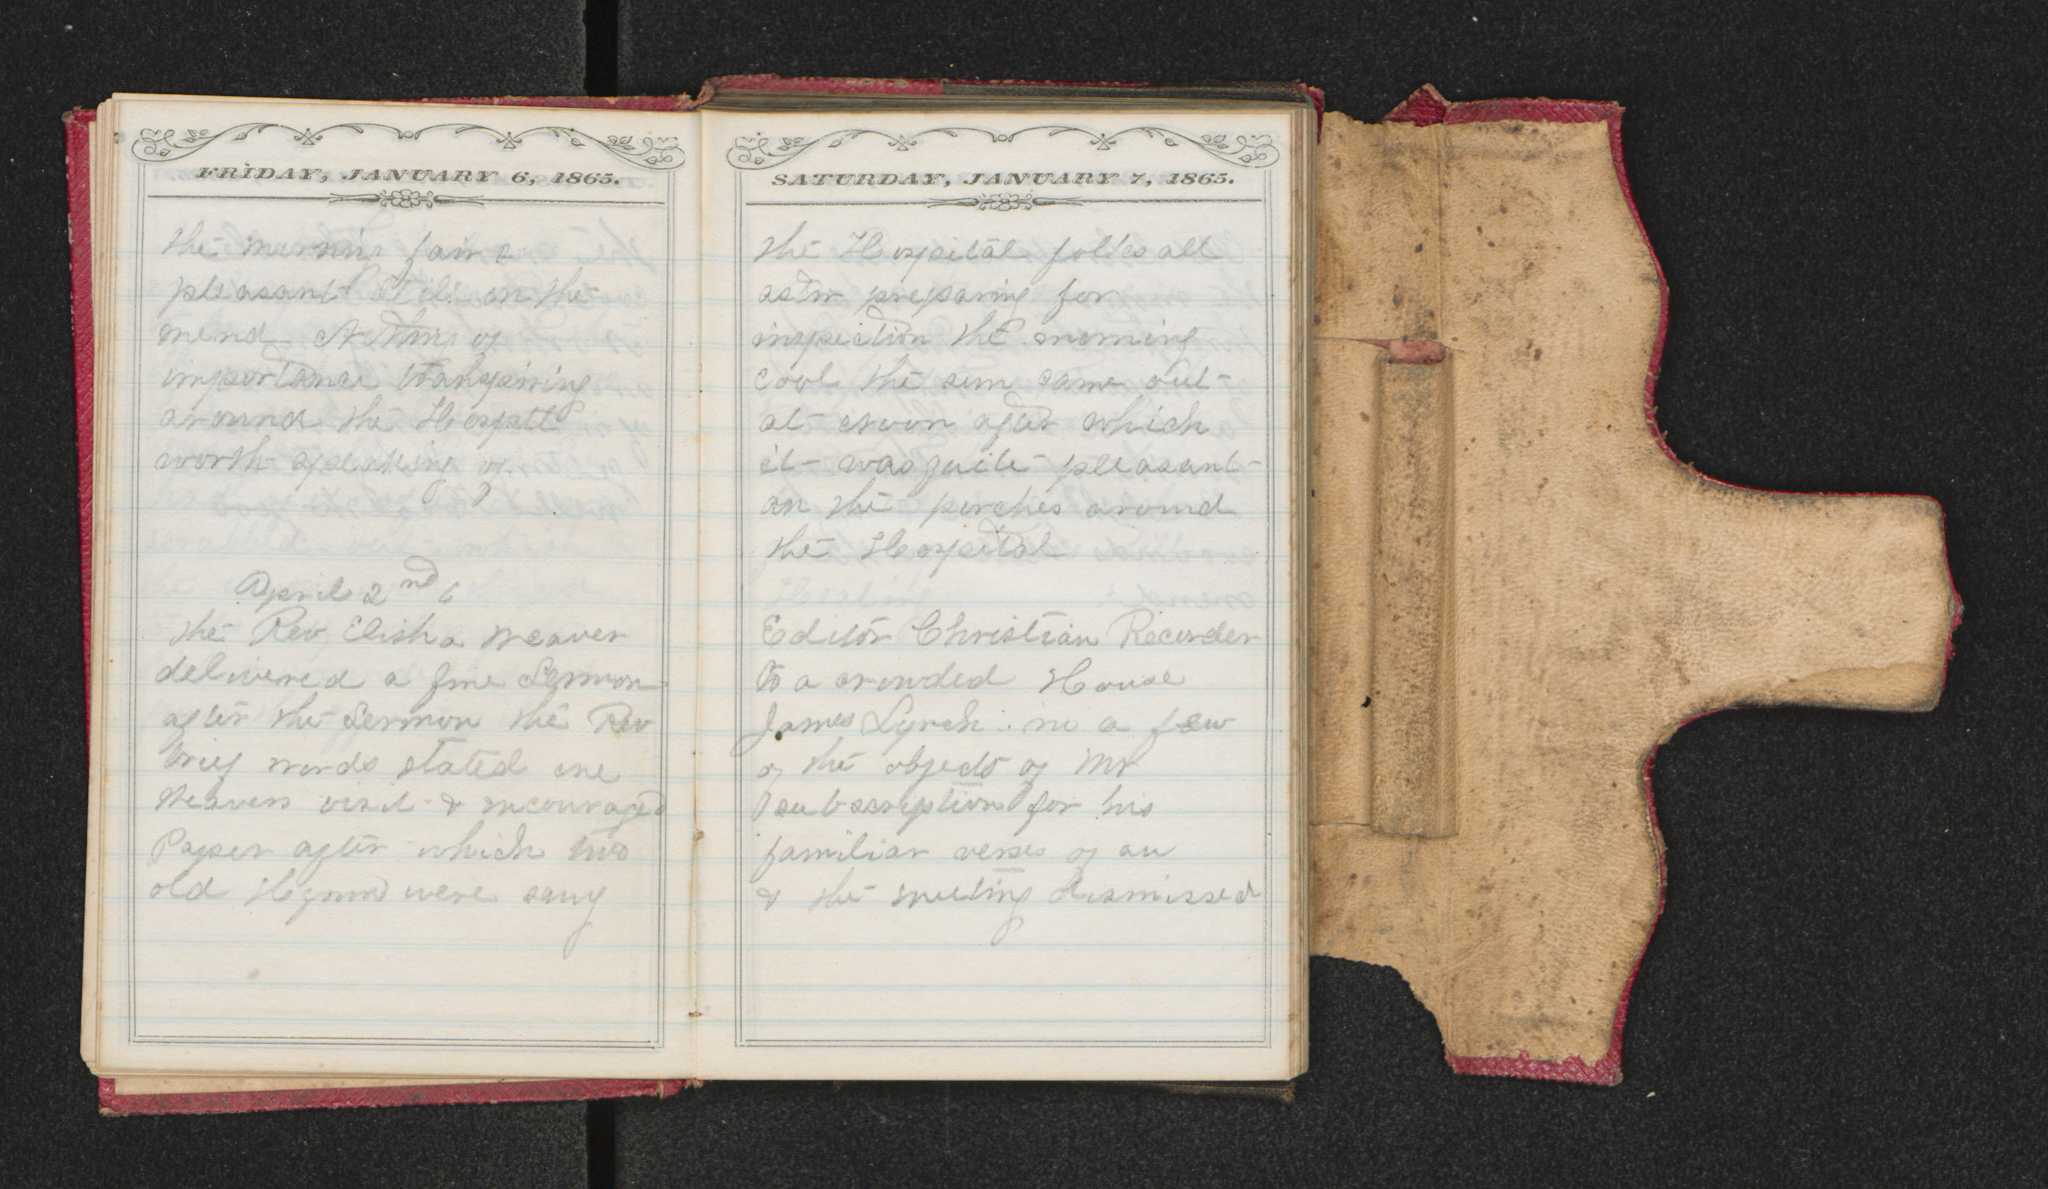 FRIDAY, JANUARY 6, 1865.
the mornin fair &
pleasant still on the
mend thing of
importance transpiring
around the Hospitl
worth speaking of.
April 2nd 6
the Rev Elisha Weaver
delivered a fine Sermon
after the Sermon the Rev
brief words stated one
Weavers visit & encouraged
Paper after which two
old Hymns were sang
SATURDAY, JANUARY 7, 1865.
the Hospital folkes all
astir preparing for
inspection the morning
cool the sun came out
at noon after which
it was quite pleasant
on the porches around
the Hospital
Editor Christian Recorder
to a crowded House
James Lynch in a few
of the objects of Mr
subscription for his
familiar verses of an
& the meeting dismissed